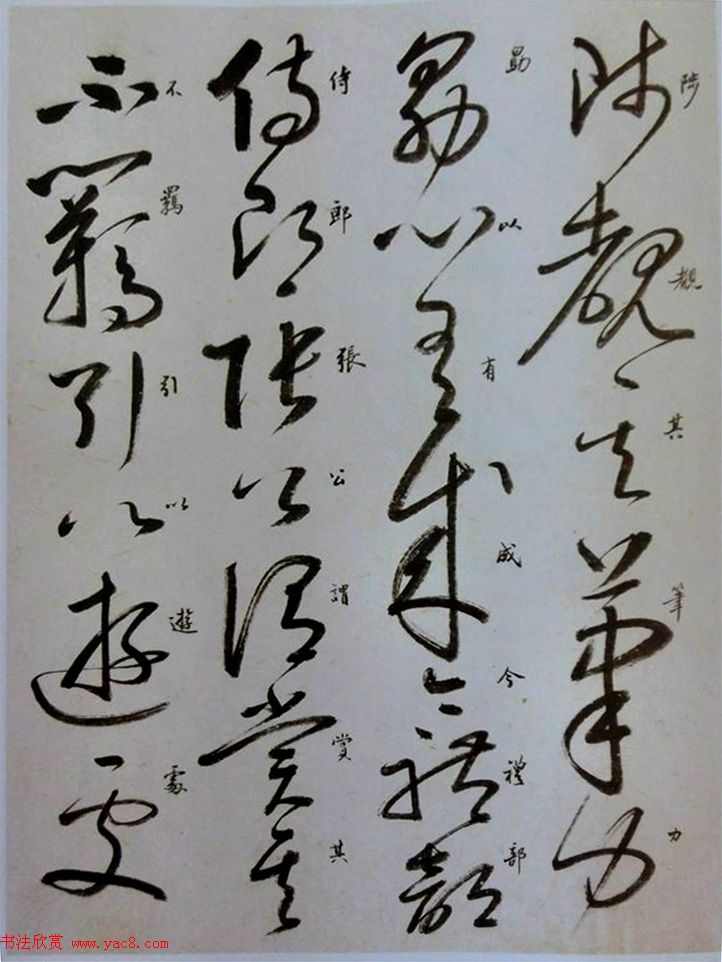 陟覩其筆力
勗以有成今禮部
侍郎張公謂賞其
不羈引以遊處
书法欣赏 www.yac8.com